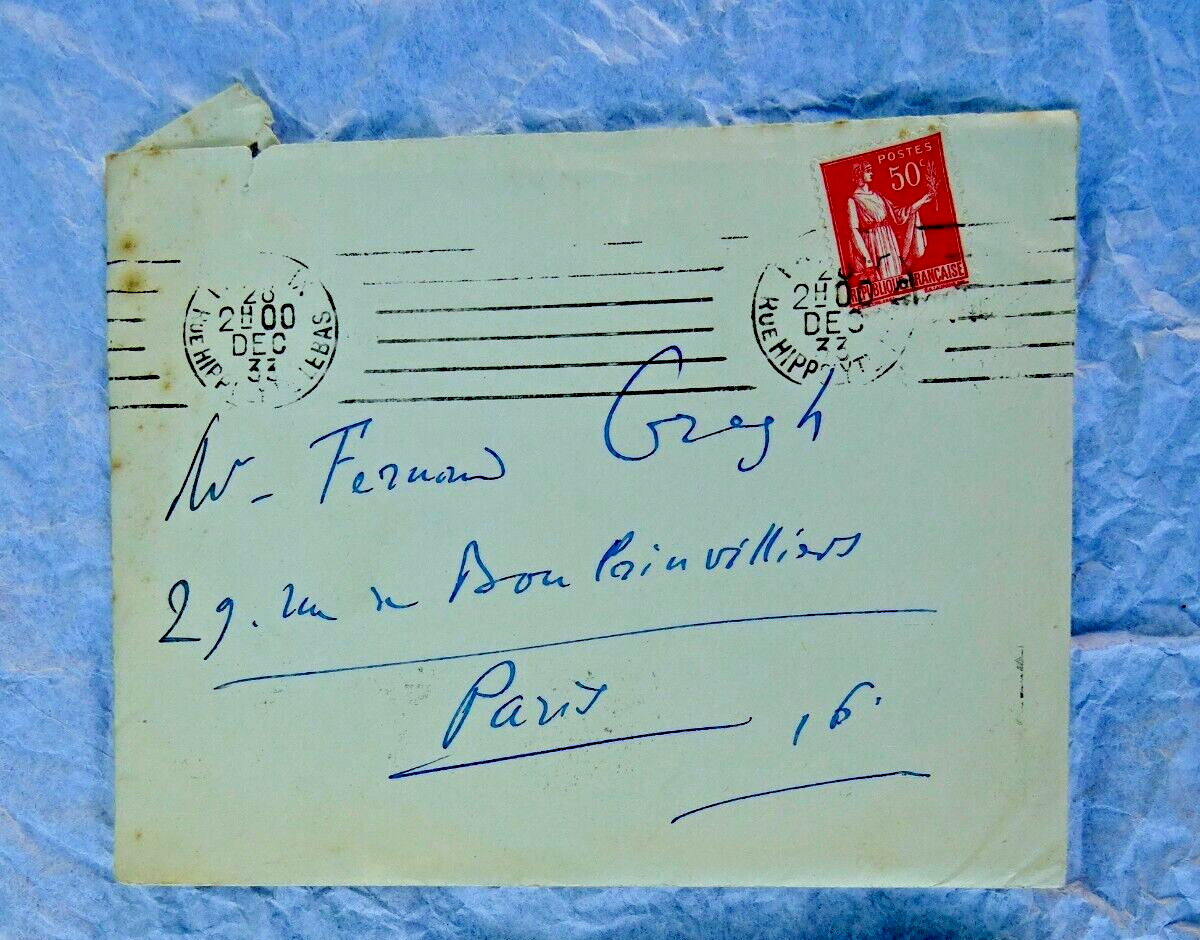 POSTES
50c
RÉPUBLIQUE FRANÇAISE
28
2H00
DEC
33
RUE HIPP LEBAS
2H00
DEC
33
RUE HIPP
Mr - Fernand Gregh
29. rue de Boulainvilliers
Paris 16.